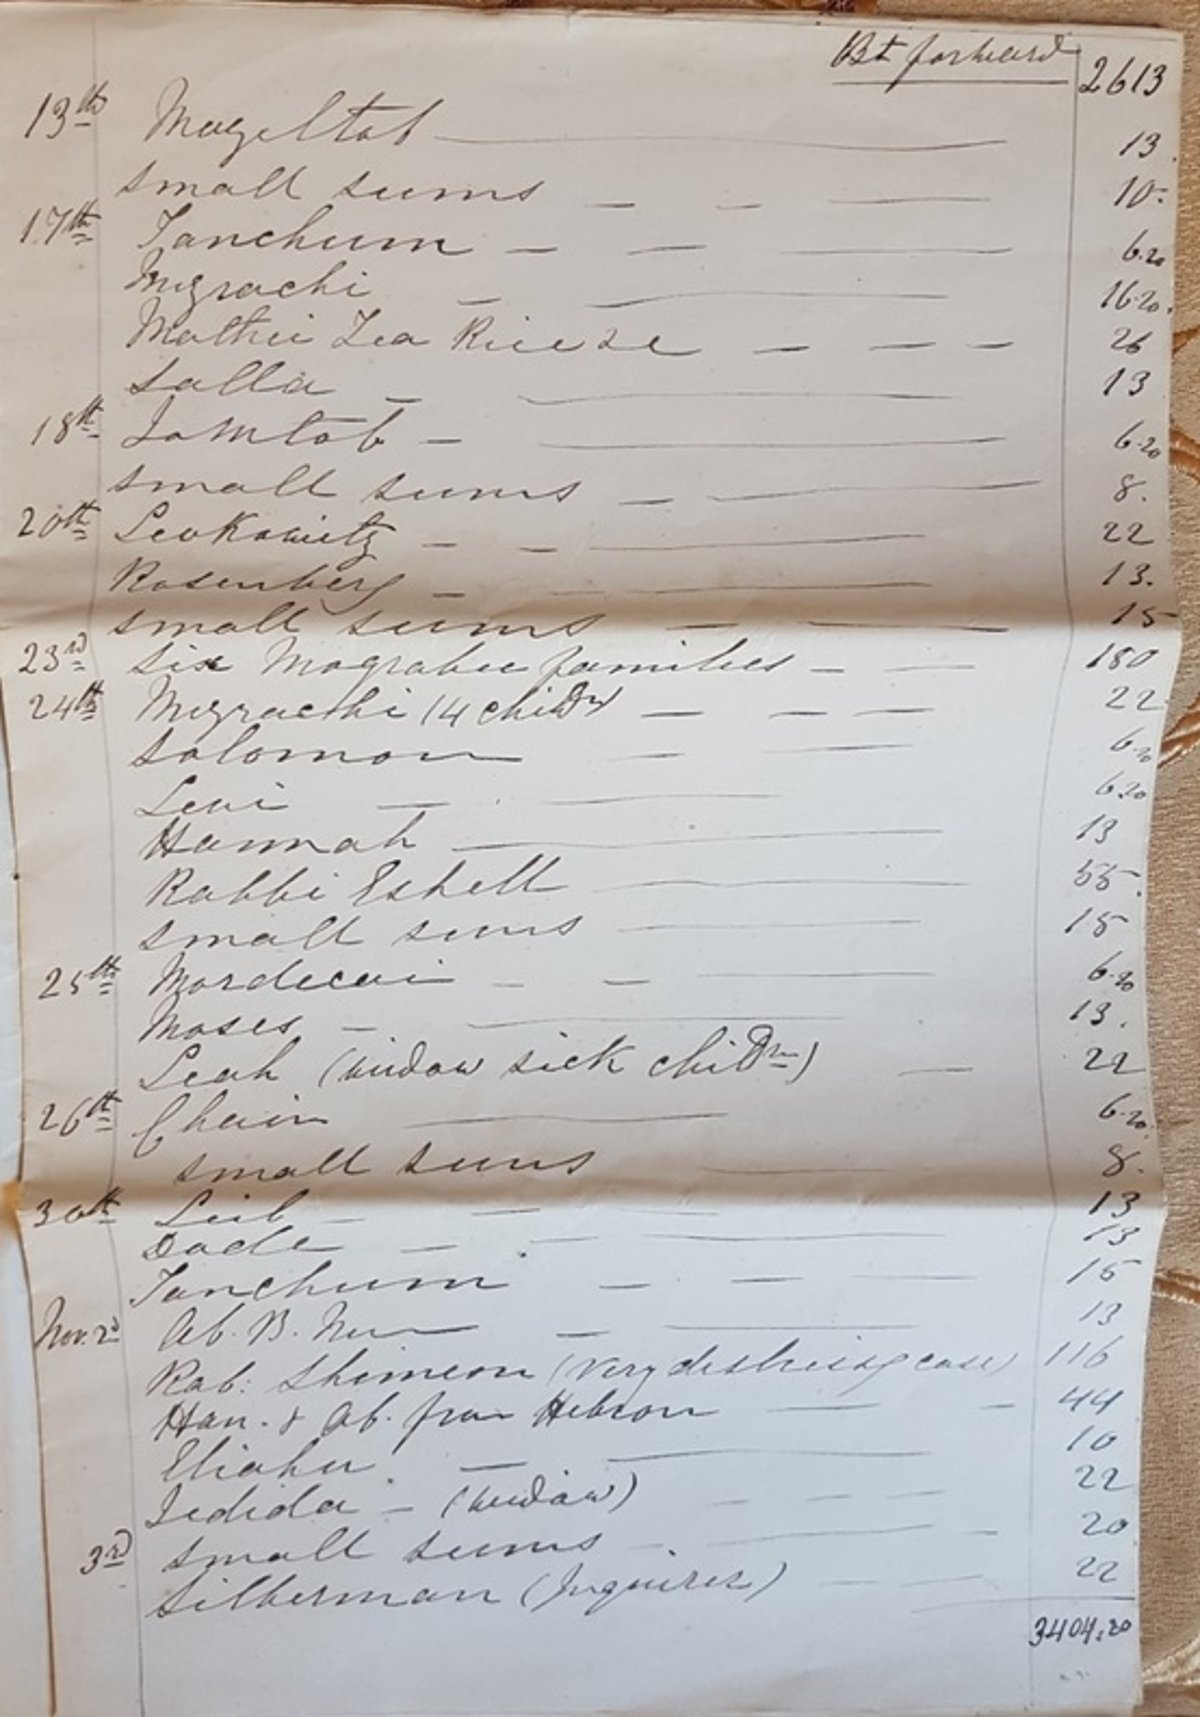 Bt forward 2613
13th Mazeltob 13
small sums 10
17th Tanchum 6.20
Mizrachi 16.20
Lea 26
Salla 13
18th Jomtob 6.20
small sums 8.
20th Leokowitz 22
Rosenberg 13.
small sums 15
23rd six Mograbee families 180
24th Mizrachi (4 childn 22
Solomon 6.20
Levi 6.20
Hannah 13
Rabbi Eshell 55.
small sums 15
25th Mordecai 6.20
Moses 13.
Leah (widow sick childn) 22
26th Chaim 6.20
small sums 8.
30th Leib 13
13
Tanchum 15
Nov. 2d Ab. B. Nun 13
Rab: Shimeon (very distressg case) 116
Han. & Ab. from Hebron 44
Eliahu 10
Jedida (widow) 22
3rd small sums 20
Silberman (Inquirer) 22
3404.20